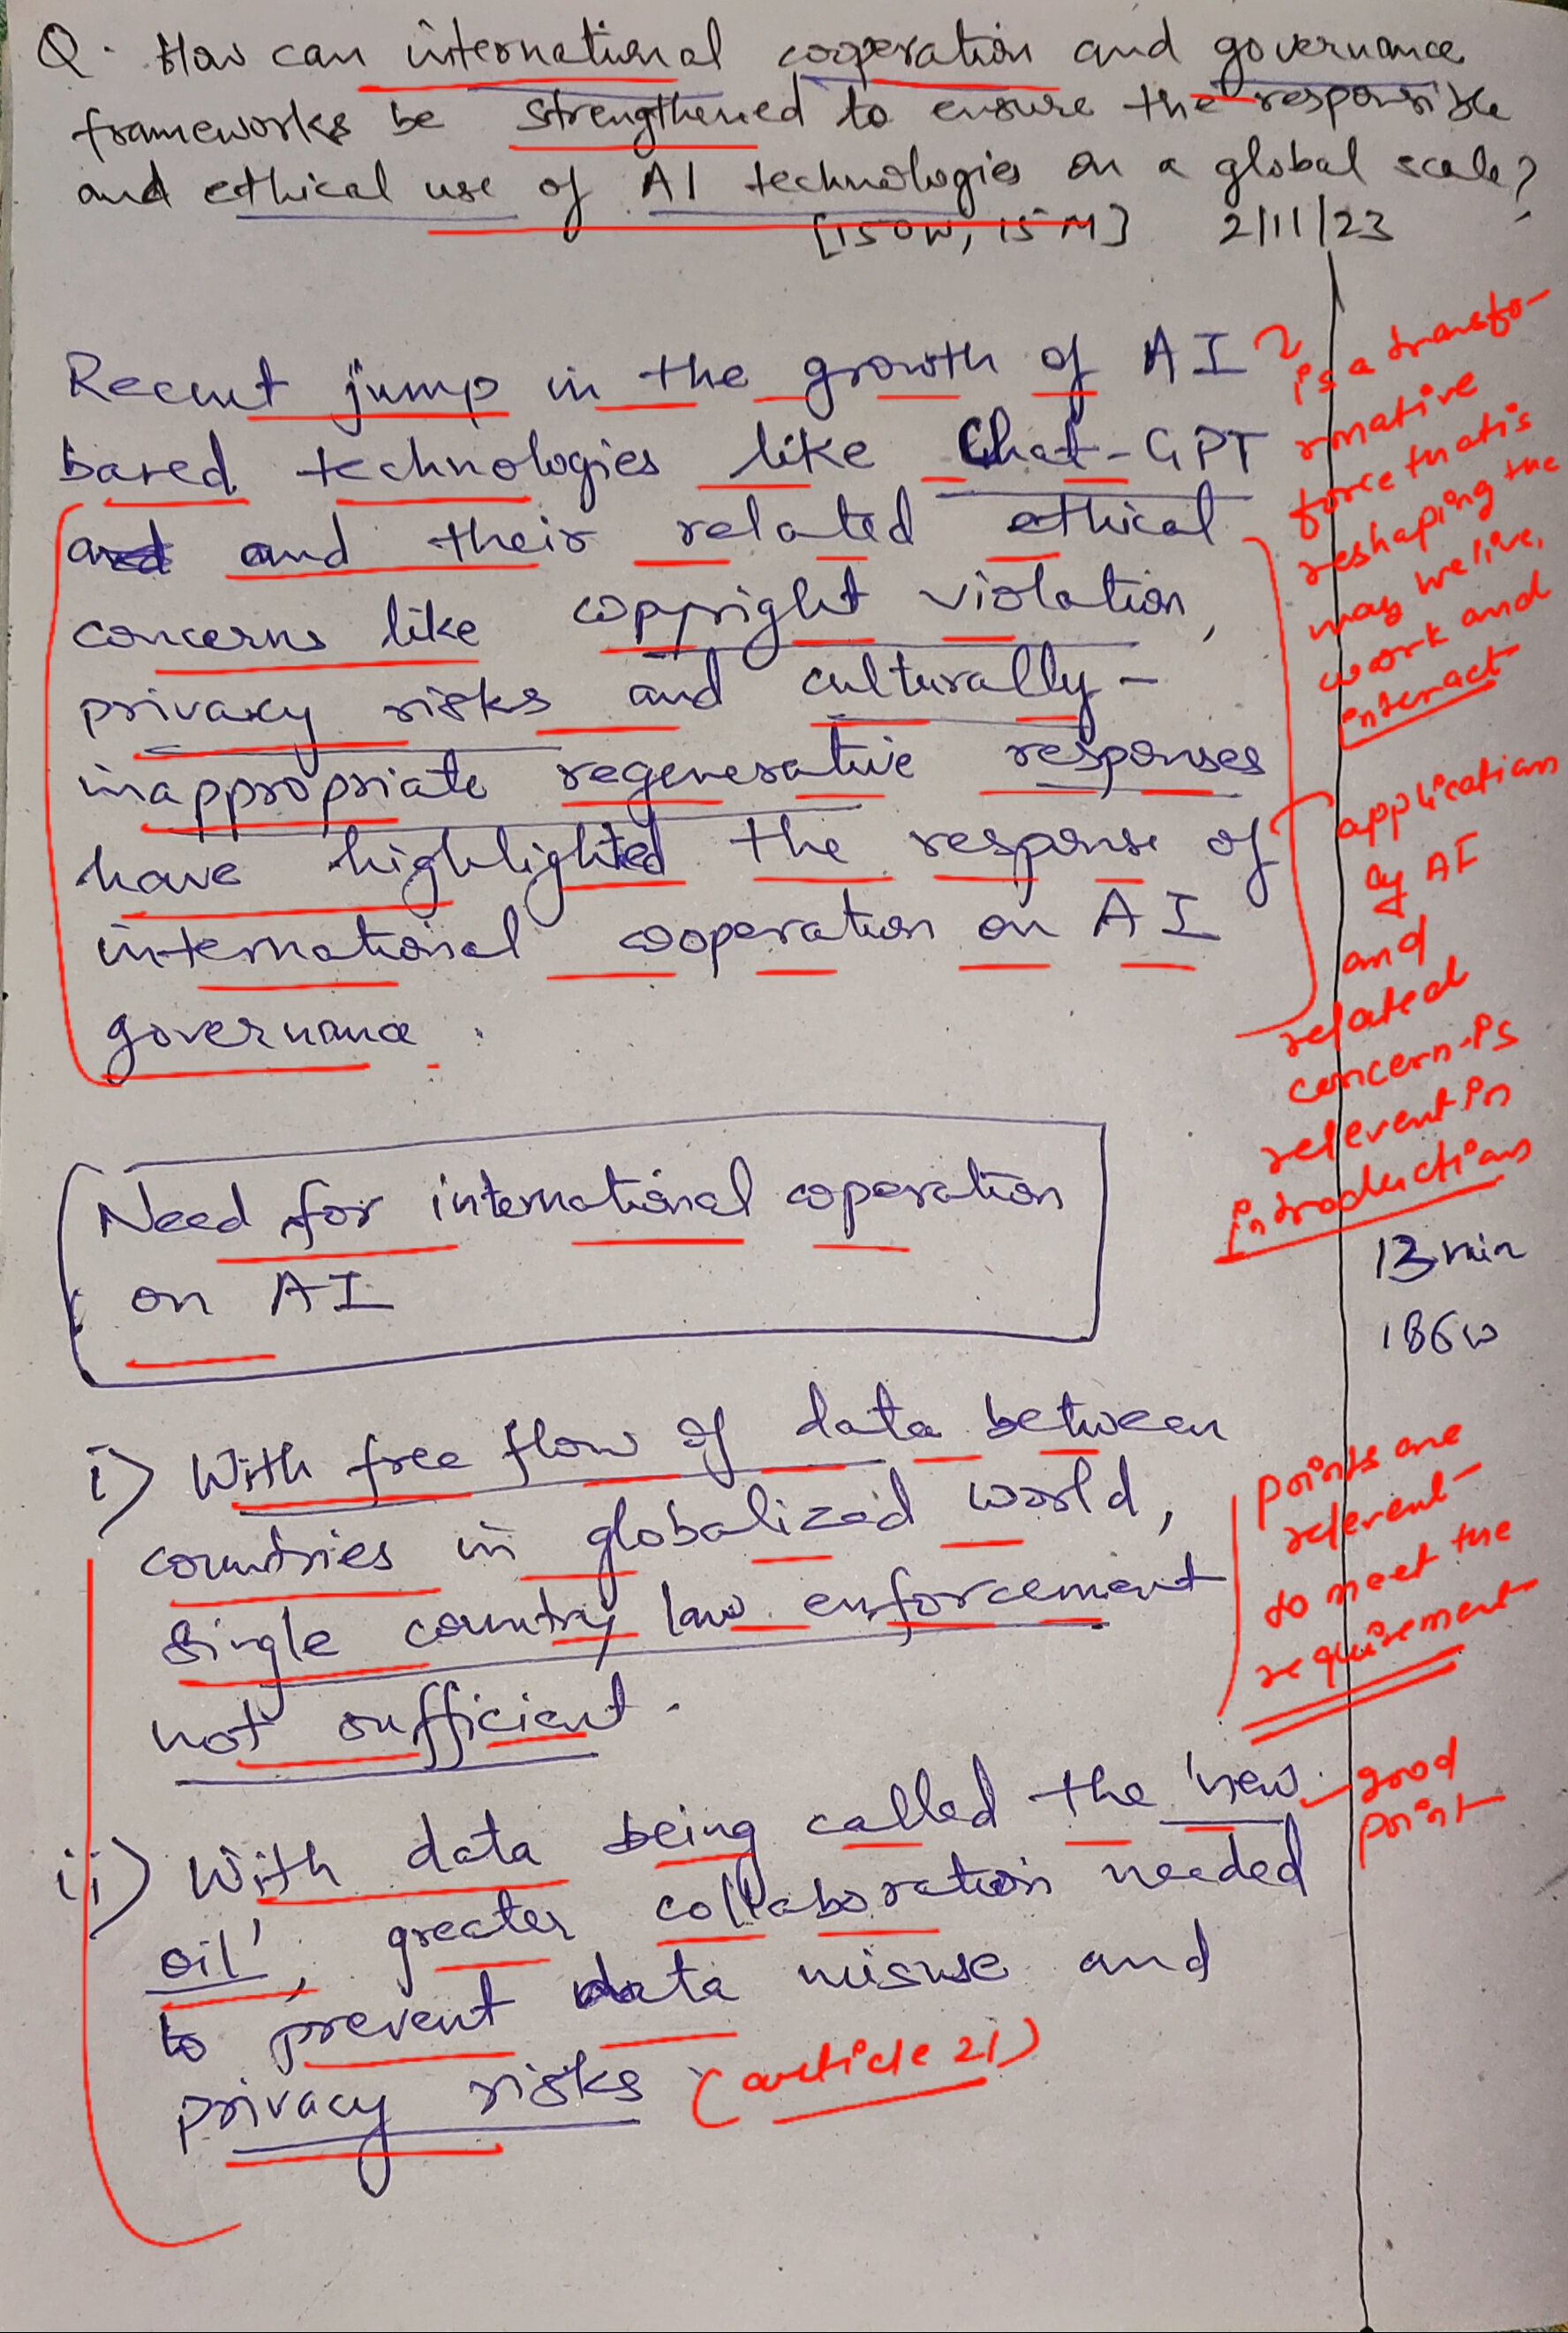 Q. How can international cooperation and governance
frameworks be strengthened to ensure the responsible
and ethical use of AI technologies on a global scale?
[150W, 15M] 2/11/23
Recent jump in the growth of AI
based technologies like Chat-GPT
and and their related ethical
concerns like copyright violation,
privacy risks and culturally-
inappropriate regenerative responses
have highlighted the response of
international cooperation on AI
governance.
is a transfo-
rmative
force that is
reshaping the
way we live,
work and
interact
applications
of AI
and
related
concern-is
relevent in
introductions
13 min
186w
Need for international coperation
on AI
i) With free flow of data between
countries in globalized world,
single country law enforcement
not sufficient.
points are
relevent
to meet the
requirement
ii) With data being called the 'new
oil', greater collaboration needed
to prevent data misuse and
privacy risks (article 21)
good
point